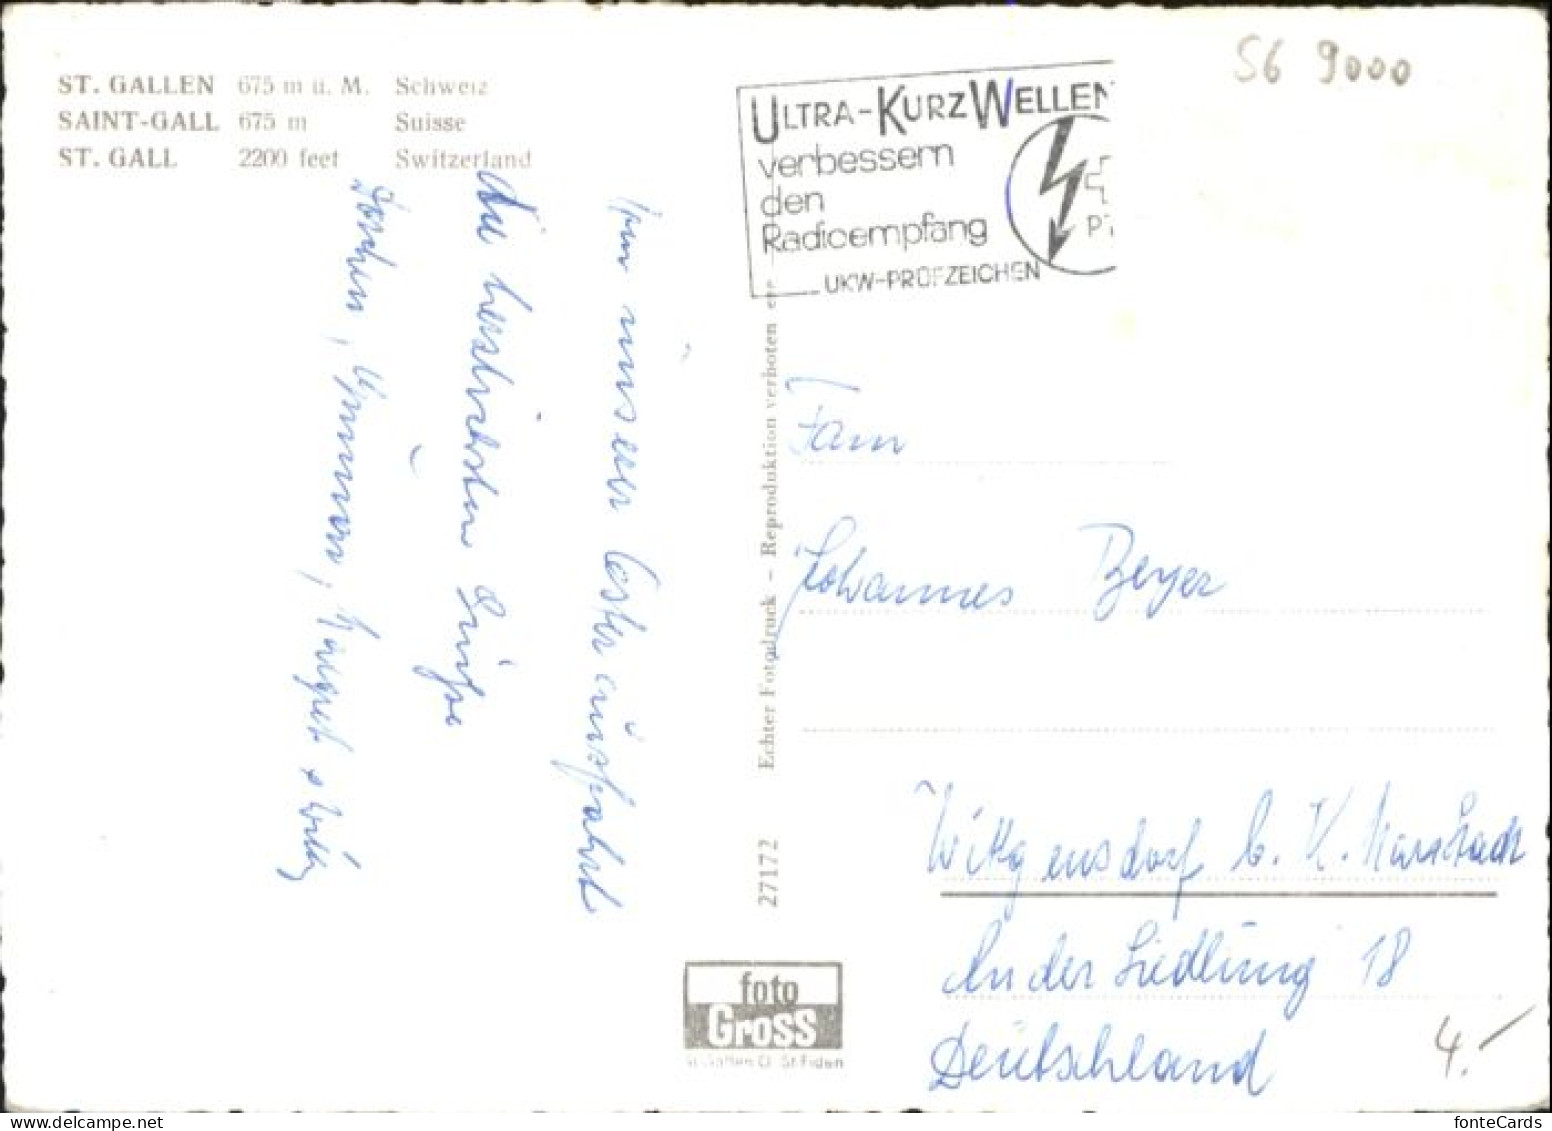 ST. GALLEN 675 m ü. M. Schweiz
SAINT-GALL 675 m Suisse
ST. GALL 2200 feet Switzerland
von unserer Osterausfahrt
die herzlichsten Grüße
ULTRA-KURZWELLEN
verbessern
den
Radioempfang
UKW-PRÜFZEICHEN
PT
SG 9000
Echter Fotodruck - Reproduktion verboten
27172
foto
Gross
St. Gallen O. St. Fiden
Fam
Johannes Beyer
Wittgensdorf b. K. Marxstadt
An der Siedlung 18
Deutschland
4.-
fonteCards